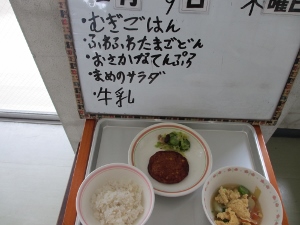 月 9日 木曜日
・むぎごはん
・ふわふわたまごどん
・おさかなてんぷら
・まめのサラダ
・牛乳